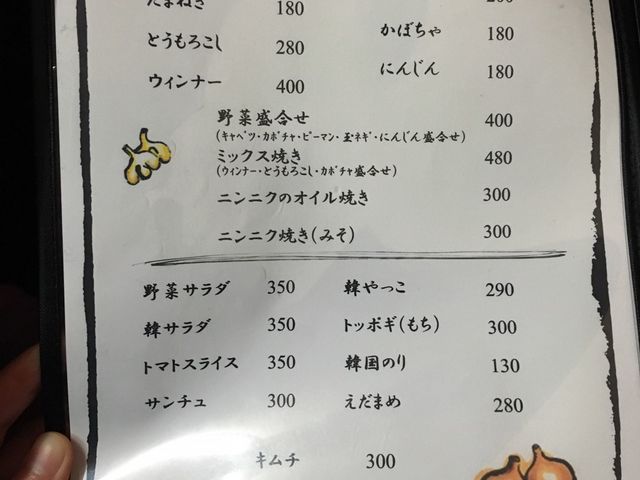 たまねぎ 180
とうもろこし 280
かぼちゃ 180
ウィンナー 400
にんじん 180
野菜盛合せ 400
(キャベツ・カボチャ・ピーマン・玉ネギ・にんじん盛合せ)
ミックス焼き 480
(ウィンナー・とうもろこし・カボチャ盛合せ)
ニンニクのオイル焼き 300
ニンニク焼き(みそ) 300
野菜サラダ 350 韓やっこ 290
韓サラダ 350 トッポギ(もち) 300
トマトスライス 350 韓国のり 130
サンチュ 300 えだまめ 280
キムチ 300